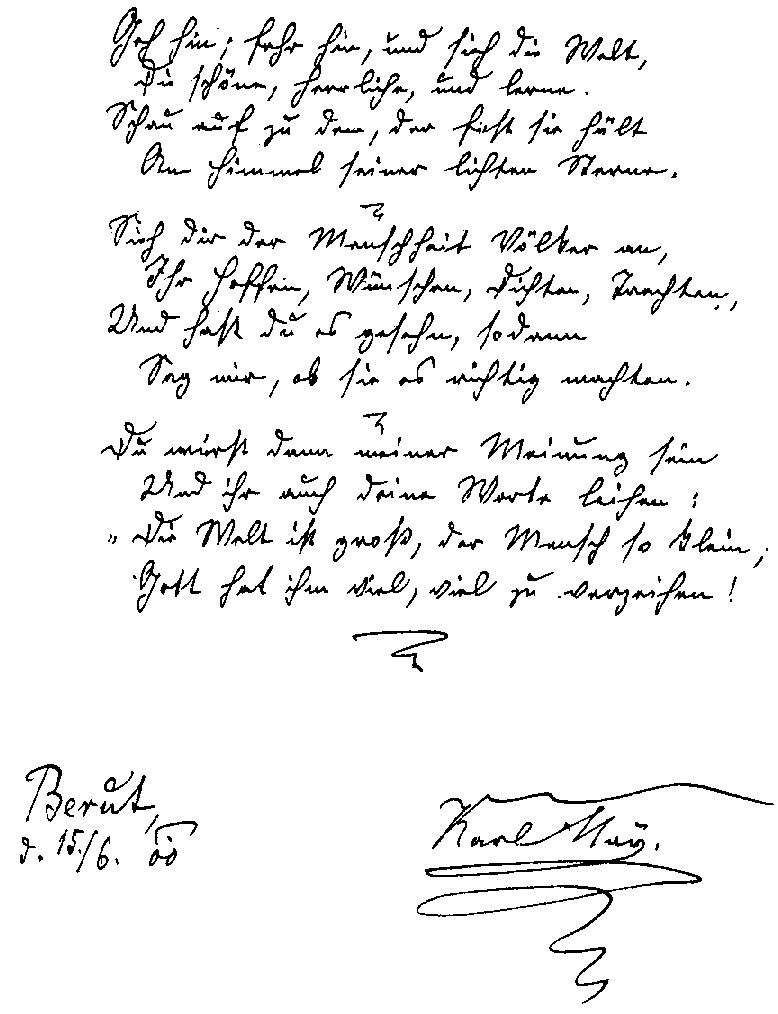 Geh hin; fahr hin, und sieh die Welt,
Die schöne, herrliche, und lerne.
Schau auf zu dem, der fest sie hält
Am Himmel seiner lichten Sterne.
Sieh dir der Menschheit Völker an,
Ihr Hoffen, Wünschen, Dichten, Trachten,
Und hast du es gesehn, sodann
Sag mir, ob sie es richtig machten.
Du wirst dann meiner Meinung sein
Und ihr auch deine Worte leihen:
„Die Welt ist groß, der Mensch so klein;
Gott hat ihm viel, viel zu verzeihen!
Berut,
d. 15./6. 00
Karl May.